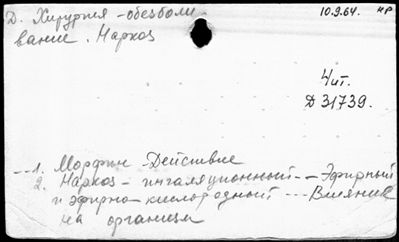 Д. Хирургия - обезболи-
вание. Наркоз
10.9.64. нр
Чит.
Д 31739.
--1. Морфин - Действие
2. Наркоз - ингаляционный -- Эфирный
и эфирно-кислородный --- Влияние
на организм